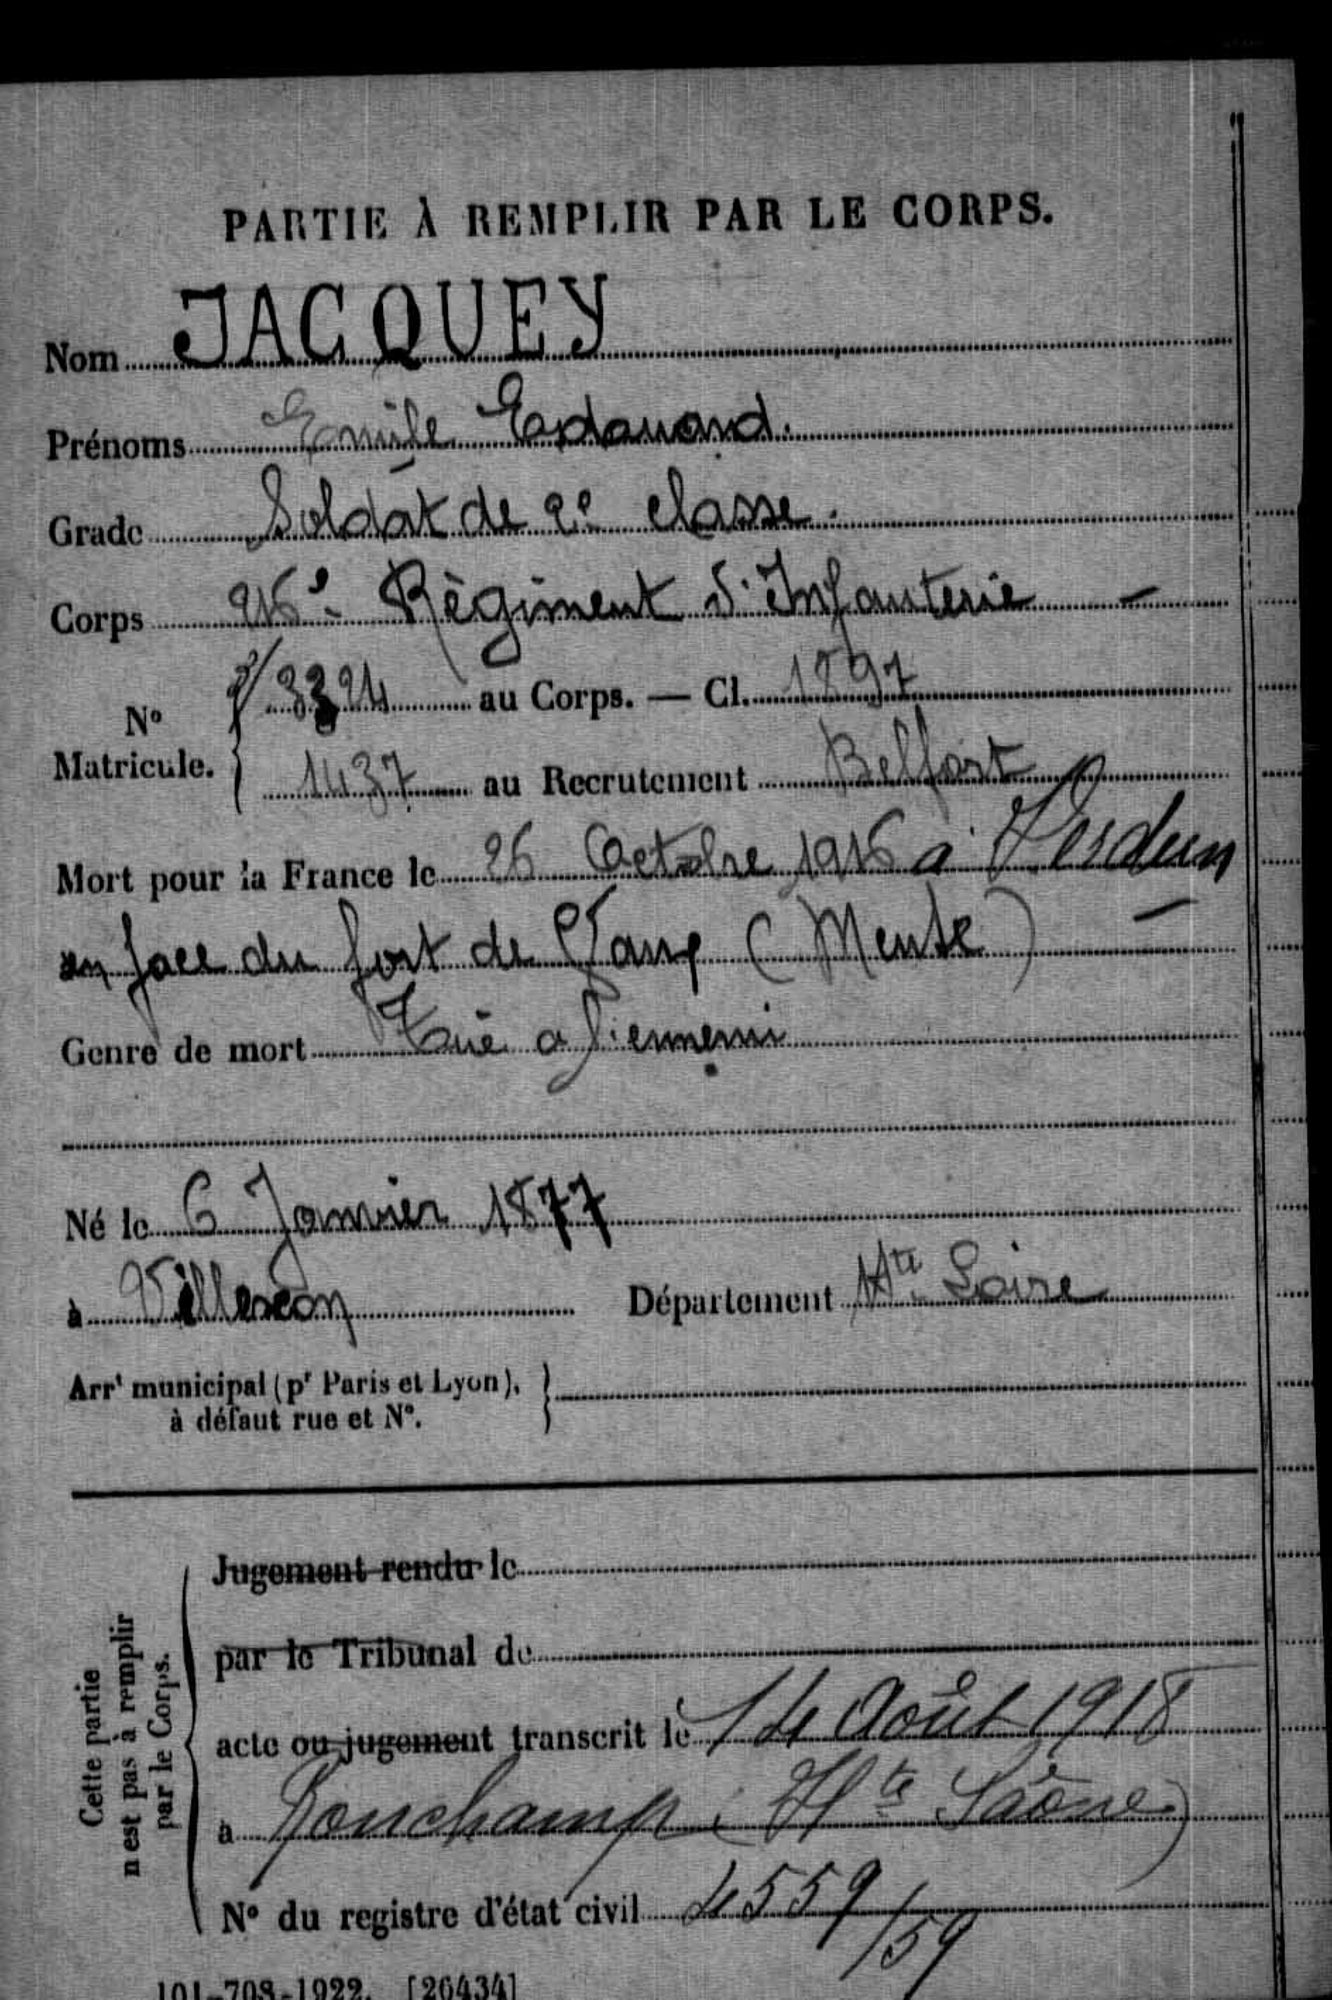 PARTIE À REMPLIR PAR LE CORPS.
Nom JACQUEY
Prénoms Emile Edouard.
Grade Soldat de 2e classe.
Corps 216e Régiment d'Infanterie
N° Matricule. { 3324 au Corps. — Cl. 1897
1437 au Recrutement Belfort
Mort pour la France le 26 Octobre 1916 à Verdun
en face du fort de Vaux (Meuse)
Genre de mort Tué a l'ennemi
Né le 6 Janvier 1877
à Département Hte Loire
Arrt municipal (pr Paris et Lyon), }
à défaut rue et N°.
Cette partie
n'est pas à remplir
par le Corps.
Jugement rendu le
par le Tribunal de
acte ou jugement transcrit le 14 Août 1918
à Ronchamp (Hte Saône)
N° du registre d'état civil 4559/59
101-708-1922. [26434]